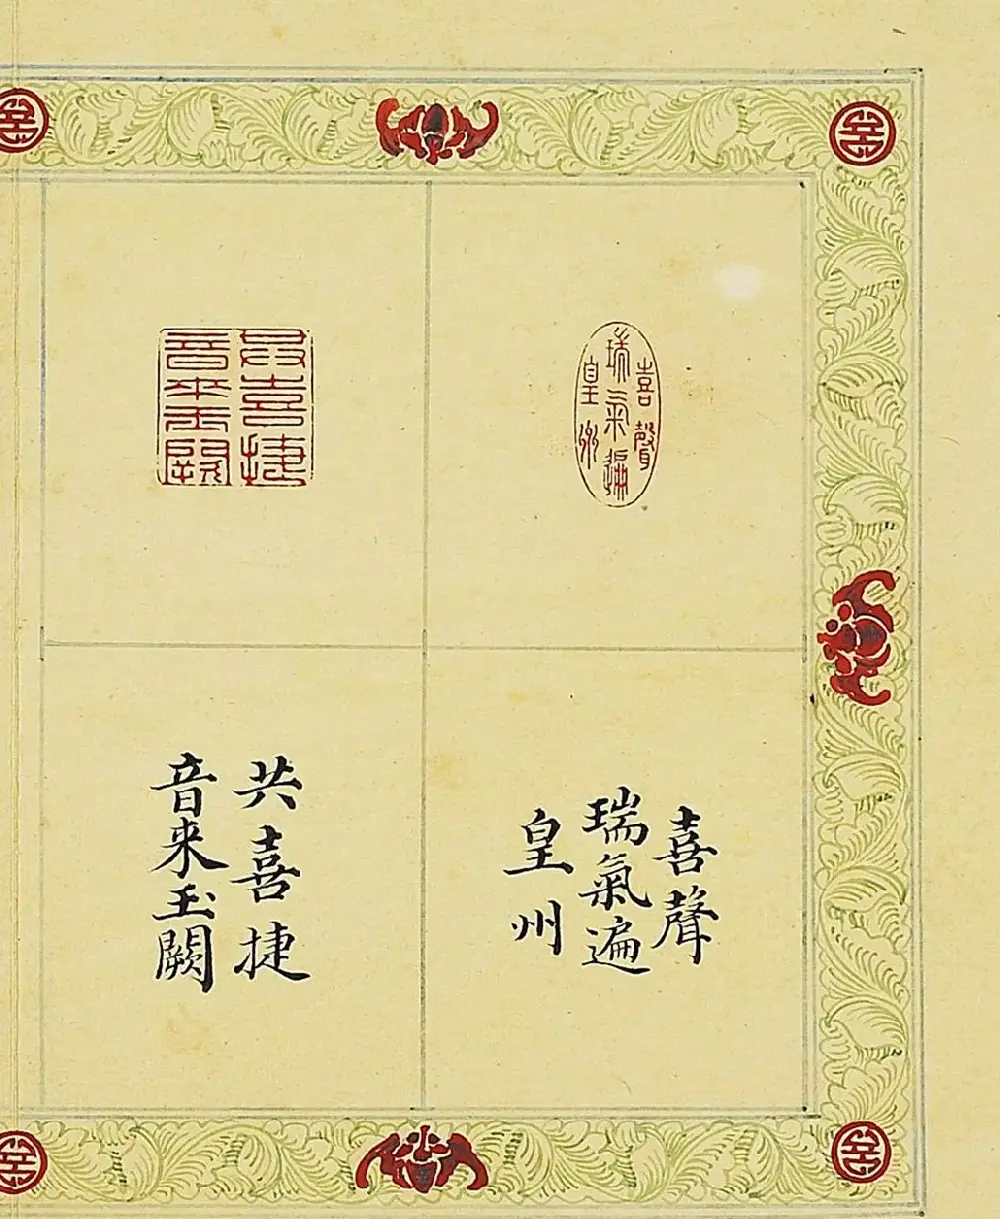 喜聲
瑞氣遍
皇州
共喜捷
音來玉闕
喜聲
瑞氣遍
皇州
共喜捷
音来玉闕